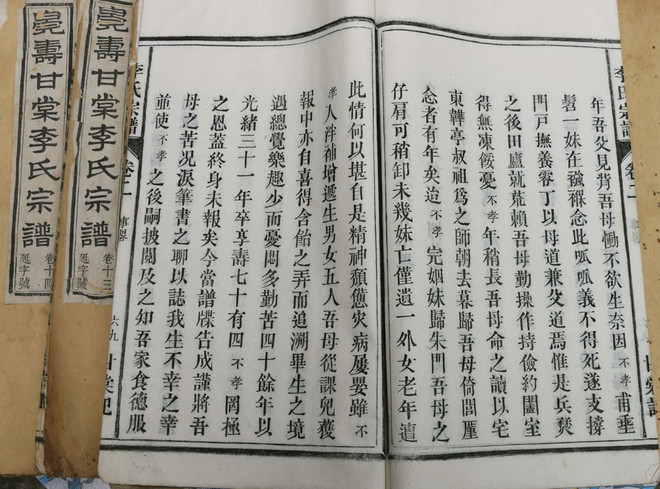 李氏宗譜 卷二
年吾父見背吾母慟不欲生奈因不孝甫垂
髫一妹在襁褓念此呱呱義不得死遂支撐
門戸撫養零丁以母道兼父道焉惟是兵燹
之後田廬就荒賴吾母勤操作持儉約闔室
得無凍餒憂不孝年稍長吾母命之讀以宅
東韡亭叔祖爲之師朝去暮歸吾母倚閭厪
念者有年矣迨不孝完姻妹歸朱門吾母之
仔肩可稍卸未幾妹亡僅遺一外女老年遭
此情何以堪自是精神頽憊灾病屢嬰雖不
孝人泮補增遞生男女五人吾母從課兒獲
報中亦自喜得含飴之弄而追溯畢生之境
遇總覺樂趣少而憂悶多勤苦四十餘年以
光緒三十一年卒享壽七十有四不孝罔極
之恩蓋終身未報矣今當譜牒告成謹將吾
母之苦况淚筆書之聊以誌我生不幸之幸
並使不孝之後嗣披閲及之知吾家食德服
李氏宗譜 卷二 事畧 六九
壽甘棠李氏宗譜 卷十三 延字號
壽甘棠李氏宗譜 卷十四 延字號